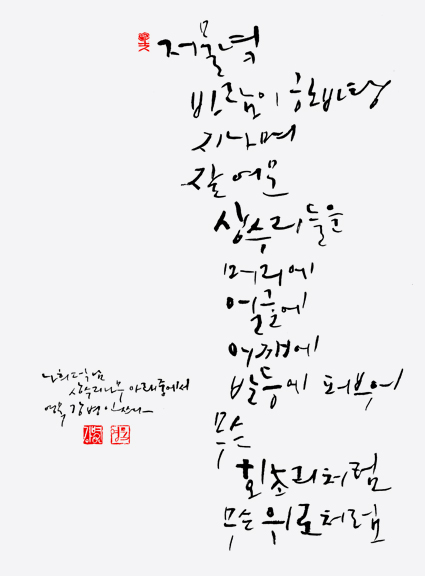 저물녘
바람이 한바탕
지나며
잘 여문
상수리들을
머리에
얼굴에
어깨에
발등에 퍼부어
무슨
회초리처럼
무슨 위로처럼
나희덕님
상수리나무 아래 중에서
영묵 강병인 쓰다